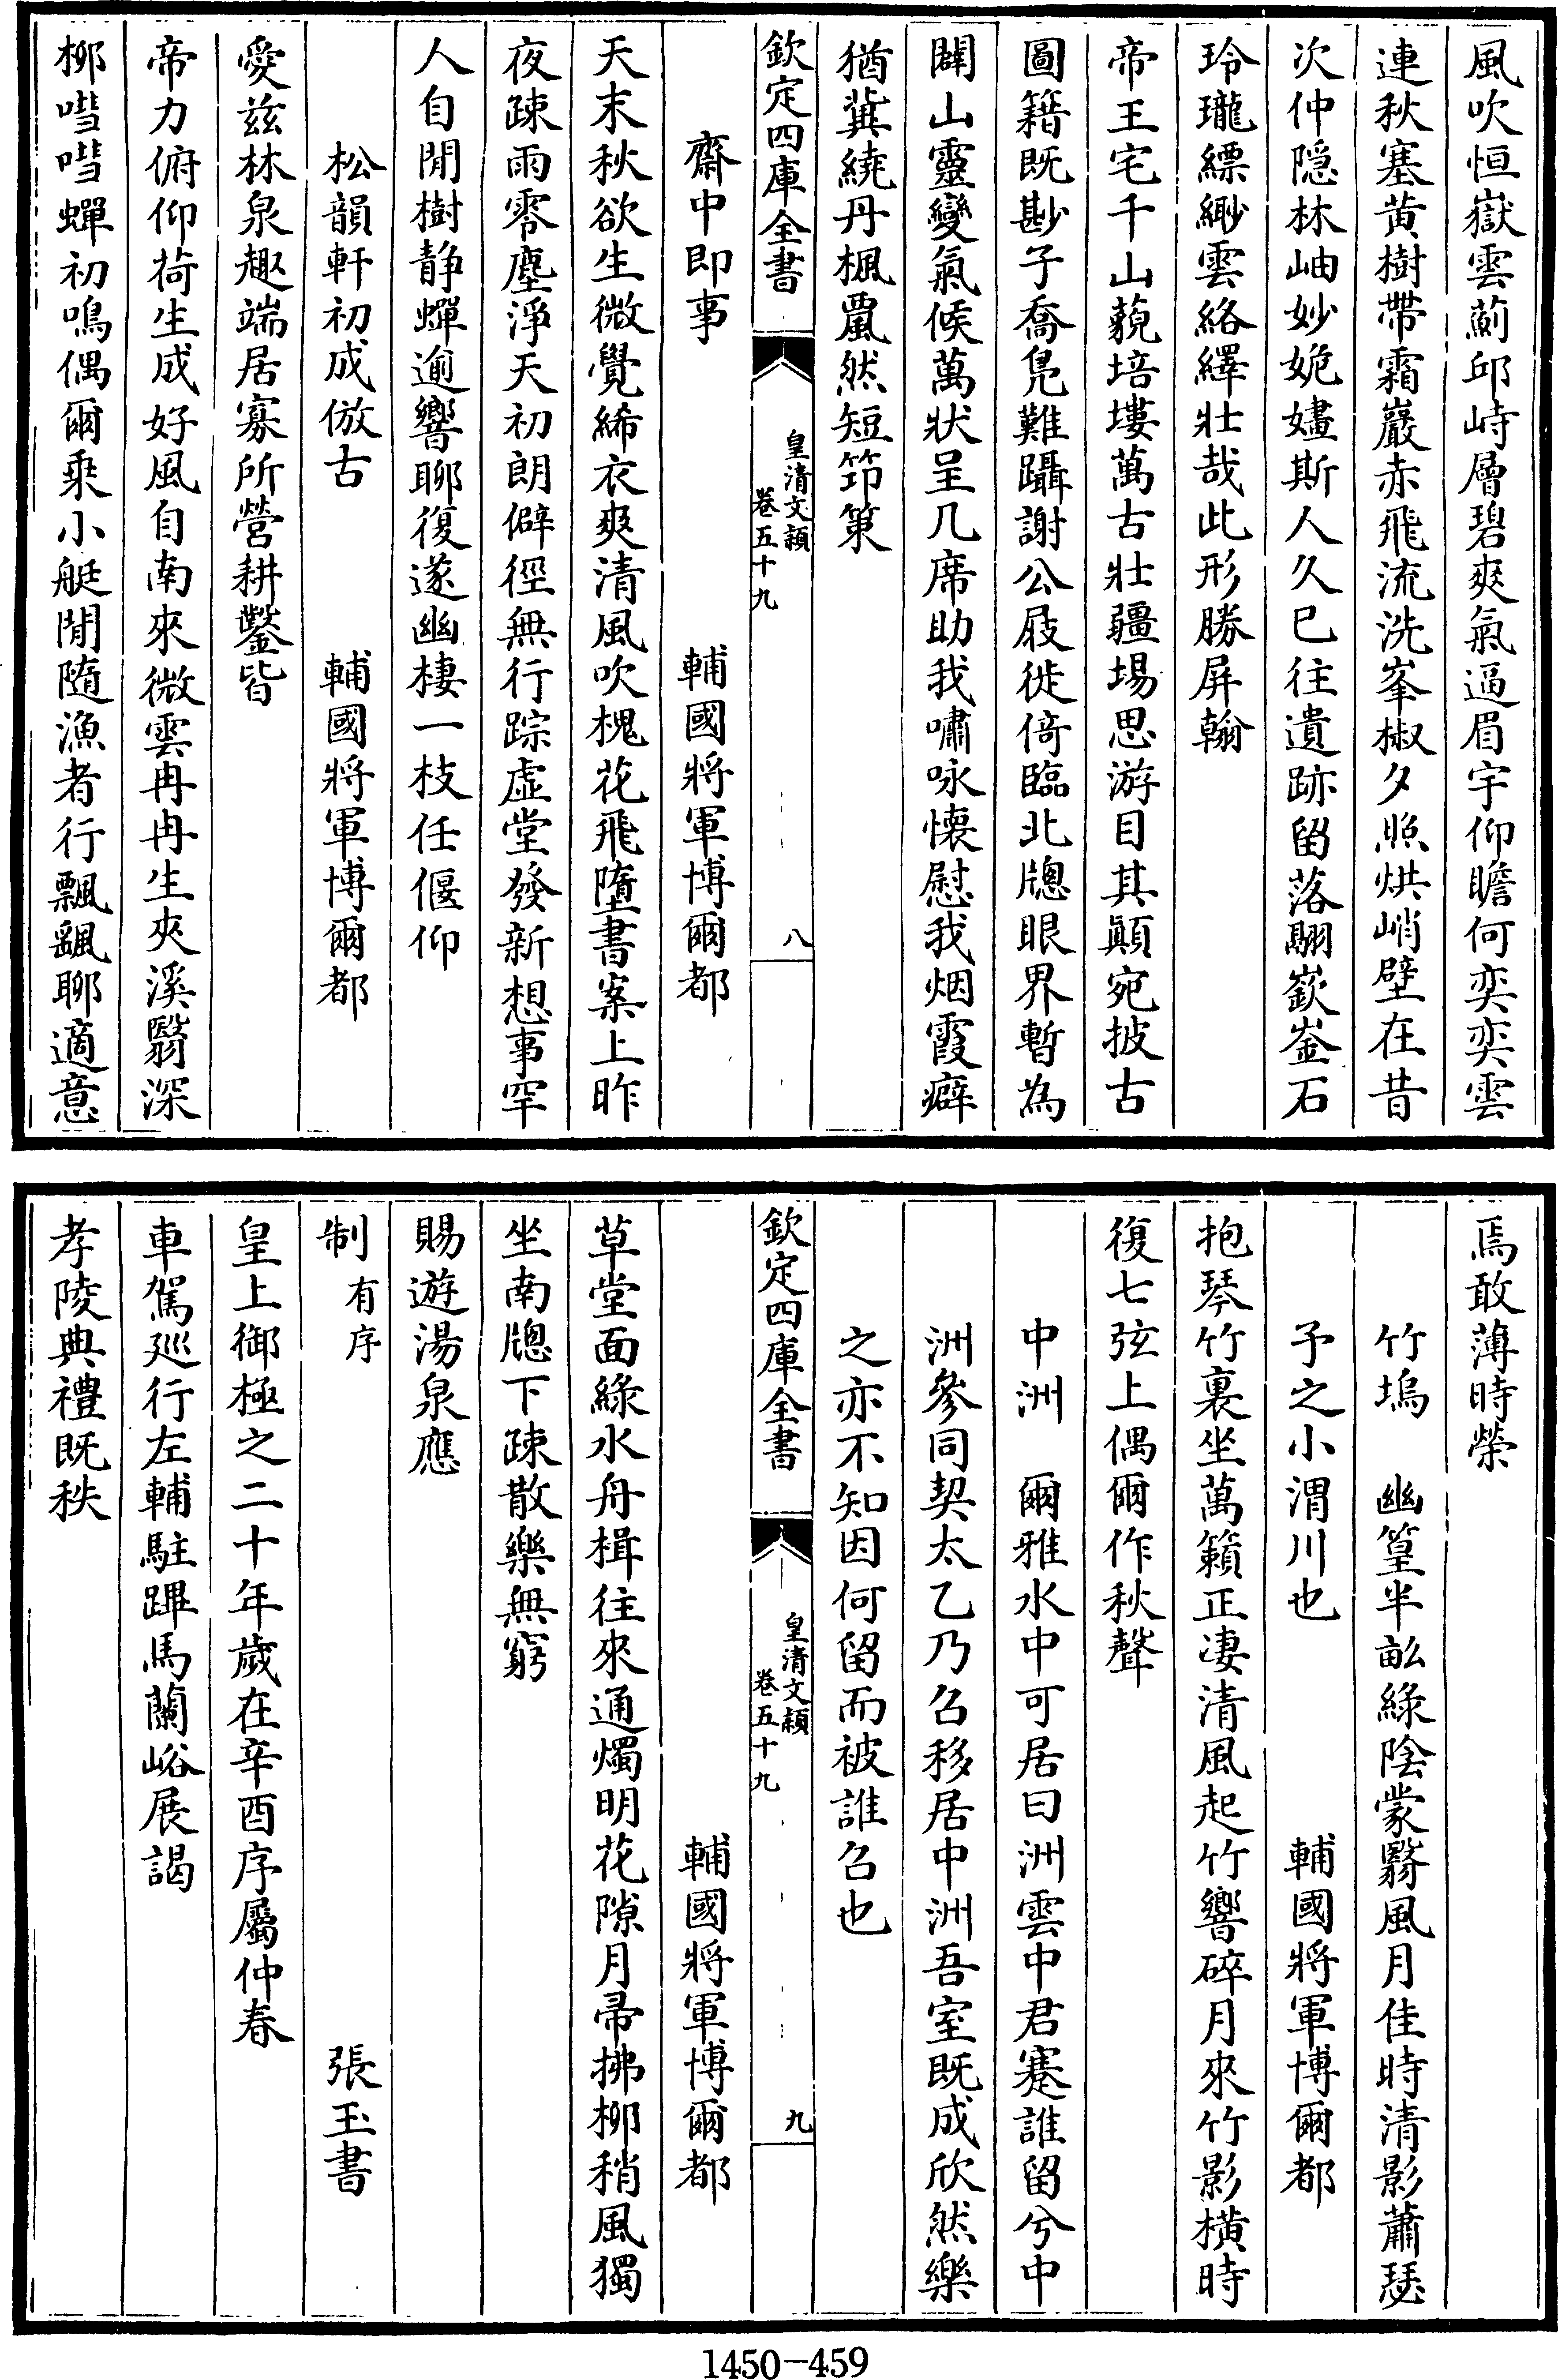 風吹恒嶽雲薊邱峙層碧爽氣逼眉宇仰瞻何奕奕雲
連秋塞黄樹帶霜巖赤飛流洗峯椒夕照烘峭壁在昔
次仲隠林岫妙姽嫿斯人久已往遺跡留落翮嶔崟石
玲瓏縹緲雲絡繹壯哉此形勝屏翰
帝王宅千山藐培塿萬古壯疆埸思游目其顛宛披古
圖籍既尠子喬凫難躡謝公屐徙倚臨北牕眼界暫為
闢山靈變氣候萬狀呈几席助我嘯咏懐慰我烟霞癖
猶冀繞丹楓罥然短笻策
欽定四庫全書
皇清文穎
卷五十九
八
齋中即事
輔國將軍博爾都
天末秋欲生微覺絺衣爽清風吹槐花飛墮書案上昨
夜疎雨零塵淨天初朗僻徑無行踪虚堂發新想事罕
人自閒樹静蟬逾響聊復遂幽棲一枝任偃仰
松韻軒初成倣古
輔國將軍博爾都
愛兹林泉趣端居寡所營耕鑿皆
帝力俯仰荷生成好風自南來微雲冉冉生夾溪翳深
柳嘒嘒蟬初鳴偶爾乘小艇閒隨漁者行飄颻聊適意
焉敢薄時榮
竹塢
幽篁半畝緑陰蒙翳風月佳時清影蕭瑟
予之小渭川也
輔國將軍博爾都
抱琴竹裏坐萬籟正凄清風起竹響碎月來竹影横時
復七弦上偶爾作秋聲
中洲
爾雅水中可居曰洲雲中君蹇誰留兮中
洲參同契太乙乃召移居中洲吾室既成欣然樂
之亦不知因何留而被誰召也
欽定四庫全書
皇清文穎
卷五十九
九
輔國將軍博爾都
草堂面緑水舟楫往來通燭明花隙月帚拂柳稍風獨
坐南牕下疎散樂無窮
賜遊湯泉應
制
有序
張玉書
皇上御極之二十年歲在辛酉序屬仲春
車駕廵行左輔駐蹕馬蘭峪展謁
孝陵典禮既秩
1450-459